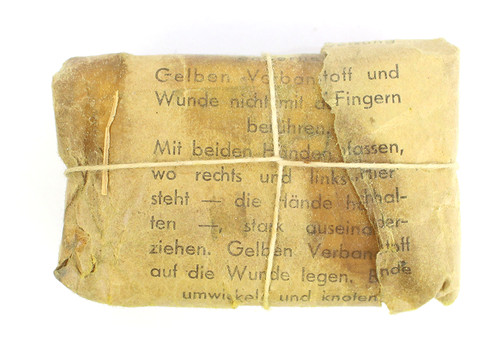 Gelben Verbandstoff und
Wunde nicht mit d Fingern
berühren.
Mit beiden Händen fassen,
wo rechts und links hier
steht — die Hände hochhal-
ten —, stark auseinander-
ziehen. Gelben Verbandstoff
auf die Wunde legen. Ende
umwickeln und knoten